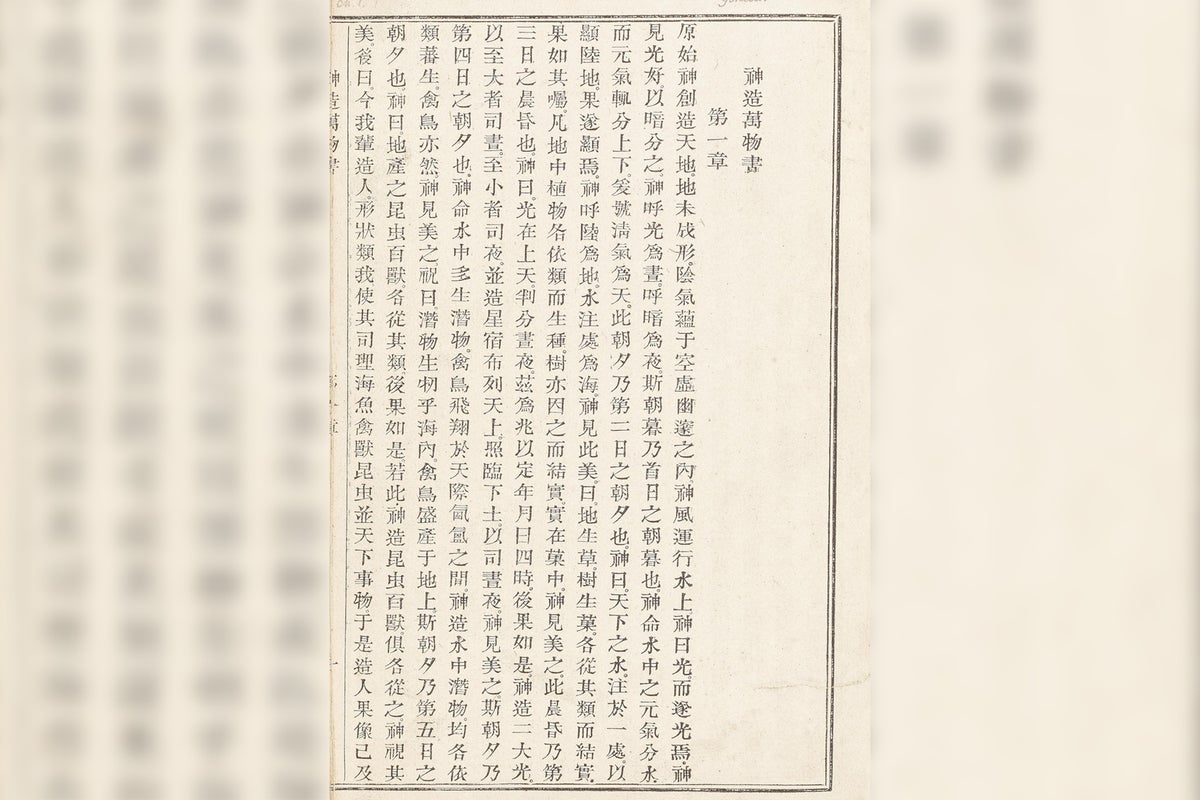 神造萬物書
第一章
原始神創造天地。地未成形。陰氣蘊于空虛幽邃之內。神風運行水上。神曰光。而遂光焉。神
見光好。以暗分之。神呼光爲晝。呼暗爲夜。斯朝暮乃首日之朝暮也。神命水中之元氣分水
而元氣輒分上下。爰號淸氣爲天。此朝夕乃第二日之朝夕也。神曰。天下之水。注於一處。以
顯陸地。果遂顯焉。神呼陸爲地。水注處爲海。神見此美。曰。地生草。樹生菓。各從其類而結實。
果如其囑。凡地中植物各依類而生種。樹亦因之而結實。實在菓中。神見美之。此晨昏乃第
三日之晨昏也。神曰。光在上天。判分晝夜。茲爲兆以定年月日四時。後果如是。神造二大光。
以至大者司晝。至小者司夜。並造星宿布列天上。照臨下土。以司晝夜。神見美之。斯朝夕乃
第四日之朝夕也。神命水中多生潛物。禽鳥飛翔於天際氤氳之間。神造水中潛物。均各依
類蕃生。禽鳥亦然。神見美之。祝曰。潛物生牣乎海內。禽鳥盛產于地上。斯朝夕乃第五日之
朝夕也。神曰。地產之昆虫百獸。各從其類。後果如是。若此神造昆虫百獸。俱各從之。神視其
美。後曰。今我輩造人。形狀類我。使其司理海魚禽獸昆虫並天下事物。于是造人果像己及
神造萬物書